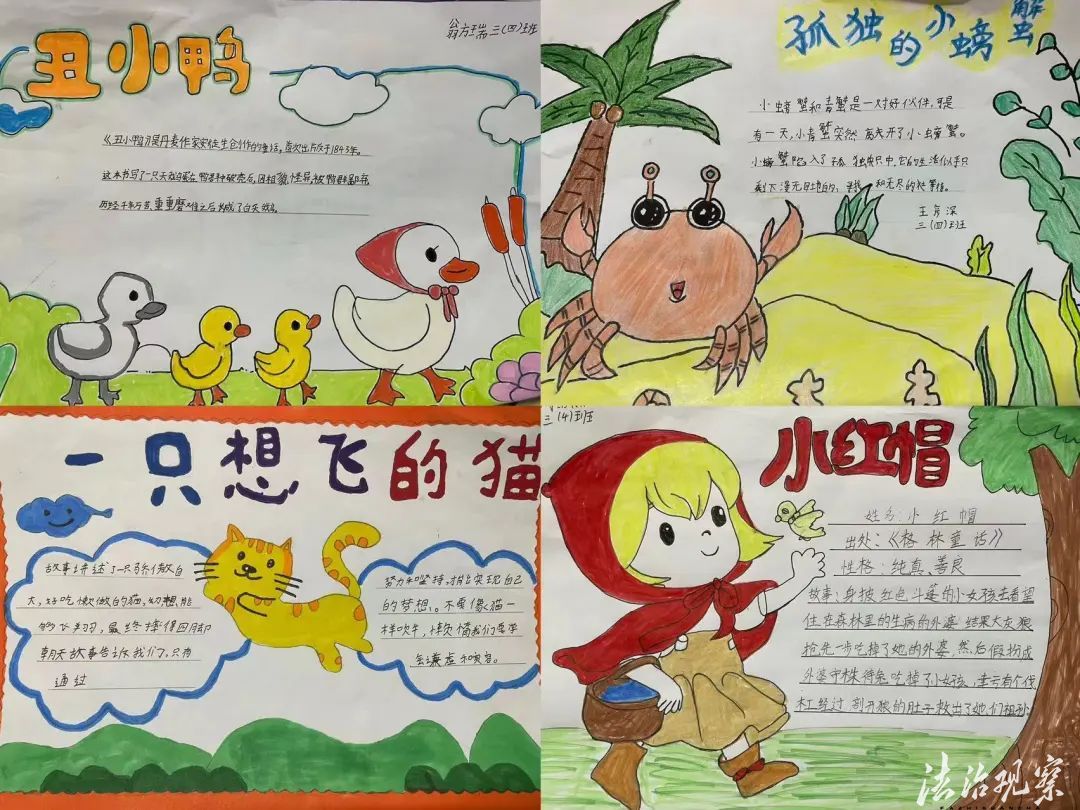 丑小鸭
翁方瑞 三(四)班
《丑小鸭》是丹麦作家安徒生创作的童话,首次出版于1843年。
这本书写了一只天鹅蛋在鸭巢中破壳后,因相貌怪异,被鸭群鄙弃,
历经千辛万苦、重重磨难之后长成了白天鹅。
孤独的小螃蟹
小螃蟹和青蟹是一对好伙伴,可是
有一天,小青蟹突然离开了小螃蟹。
小螃蟹陷入了孤独中,它的生活似乎只
剩下漫无目地的寻找和无尽的
王彦深
三(四)班
一只想飞的猫
故事讲述了一只骄傲自
大,好吃懒做的猫,幻想能
够飞翔,最终摔得四脚
朝天故事告诉我们,只有
通过
努力和坚持,才能实现自己
的梦想。不要像猫一
样吹牛,
会谦虚和
三(4)班
小红帽
姓名:小红帽
出处:《格林童话》
性格:纯真、善良
故事:身披红色斗篷的小女孩去看望
住在森林里的生病的外婆,结果大灰狼
抢先一步吃掉了她的外婆,然后假扮成
外婆守株待兔吃掉了小女孩,幸亏有个伐
木工经过,剖开狼的肚子救出了她们祖孙。
法治观察